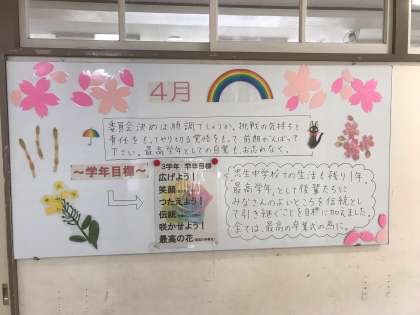 4月
委員会決めは順調でしょうか。挑戦の気持ちと
責任をもってやりきる覚悟をもって前期がんばって
下さい。最高学年としての自覚もお忘れなく。
～学年目標～
3学年 学年目標
広げよう！
笑顔
つたえよう！
伝統
咲かせよう！
最高の花
生中学校での生活も残り1年。
最高学年として後輩たちに
みなさんのよいところを伝統とし
て引き継ぐことを目標に加えました。
全ては、最高の卒業式の為に。